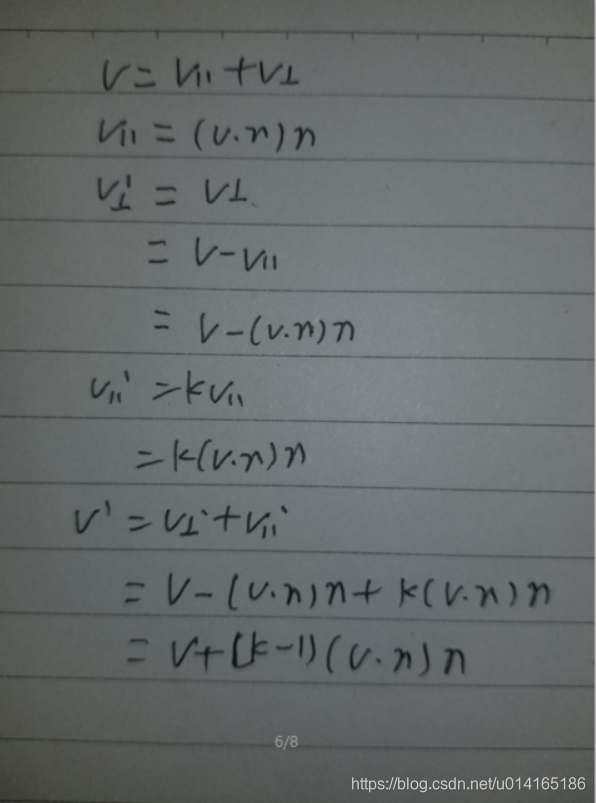 v = v∥ + v⊥
v∥ = (v·n)n
v⊥' = v⊥
= v - v∥
= v - (v·n)n
v∥' = k v∥
= k(v·n)n
v' = v⊥' + v∥'
= v - (v·n)n + k(v·n)n
= v + (k-1)(v·n)n
6/8
https://blog.csdn.net/u014165186